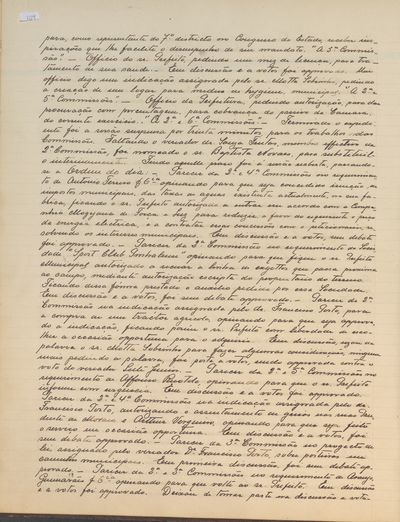 para, como representante do 7º districto no Congresso do Estado, receber ins-
pirações que lhe facilite o desempenho de seu mandato. "A 5ª Commis-
são." — Officio do sr. Prefeito, pedindo um mez de licença, para tra-
tamento de sua saude. — Em discussão e a votos foi approvado. Um
officio digo uma indicação assignada pelo sr. Motta Sobrinho, pedindo
a creação de um logar para medico de hygiene municipal. "A 2ª e
5ª Commissões. — Officio da Prefeitura, pedindo autorização para dar
procuração com porcentagem, para cobrança do fiscal da Camara,
do corrente exercicio. "A 3ª e 6ª Commissões — Terminado o expedi-
ente foi a sessão suspensa por trinta minutos para os trabalhos das
Commissões. Faltando o vereador dr. Souza Freitas, membro effectivo da
2ª Commissão, foi nomeado o sr. Baptista Novaes, para substituil-
o interinamente. Findo aquelle prazo foi a sessão reaberta, passando-
se a Ordem do dia: — Parecer da 3ª e 4ª Commissões no requerimen-
to de Antonio Servio & Cª opinando para que seja concedida isenção de
impostos municipaes, das taxas de aguas existentes actualmente, na rua pu-
blica, ficando o sr. Prefeito autorizado a entrar em accordo com a Compa-
nhia Mogyana de Força e Luz para reduzir a favor do supplicante o preço
da energia electrica, e a contratar essas concessões com o peticionario, re-
solvendo os interesses municipaes. Em discussão e a votos, sem debate
foi approvado. — Parecer da 3ª Commissão no requerimento da Socie-
dade Sport Club Pinhalense opinando para que fique o sr. Prefeito
Municipal autorizado a recuar a linha de esgottos que passa proxima
ao campo, mediante autorização escripta do proprietario do terreno.
Ficando dessa forma prestado o auxilio pedido por essa Sociedade.
Em discussão e a votos, foi sem debate approvado. — Parecer da 3ª
Commissão na indicação assignada pelo dr. Francisco Porto, para
a compra de um tractor agricola, opinando para que seja approva-
do a indicação, ficando porem o sr. Prefeito com liberdade de esco-
lher a occasião opportuna para o adquirir. Em discussão, usou da
palavra o sr. Motta Sobrinho para fazer algumas considerações, ninguem
mais pedindo a palavra, foi posto a votos, sendo approvado contra o
voto do vereador José Jorio. — Parecer da 2ª e 5ª Commissões no
requerimento de Affonso Ricotelo, opinando para que o sr. Prefeito
informe com urgencia. Em discussão e a votos foi approvado.
Parecer da 2ª e 4ª Commissões na indicação assignada pelo dr.
Francisco Porto, autorizando o assentamento de guias nas ruas Pru-
dente de Moraes e Arthur Vergueiro, opinando para que seja feito
o serviço na occasião opportuna. Em discussão e a votos, foi
sem debate approvado. — Parecer da 3ª Commissão no projecto de
lei assignado pelo vereador Dr. Francisco Porto, sobre pinturas nos
caminhões municipaes. Em primeira discussão, foi sem debate ap-
provado. — Parecer da 2ª e 3ª Commissões no requerimento de Araujo
Guimarães & Cª opinando para que volte ao sr. Prefeito. Em discussão
e a votos foi approvado. Deixou de tomar parte na discussão e vota-